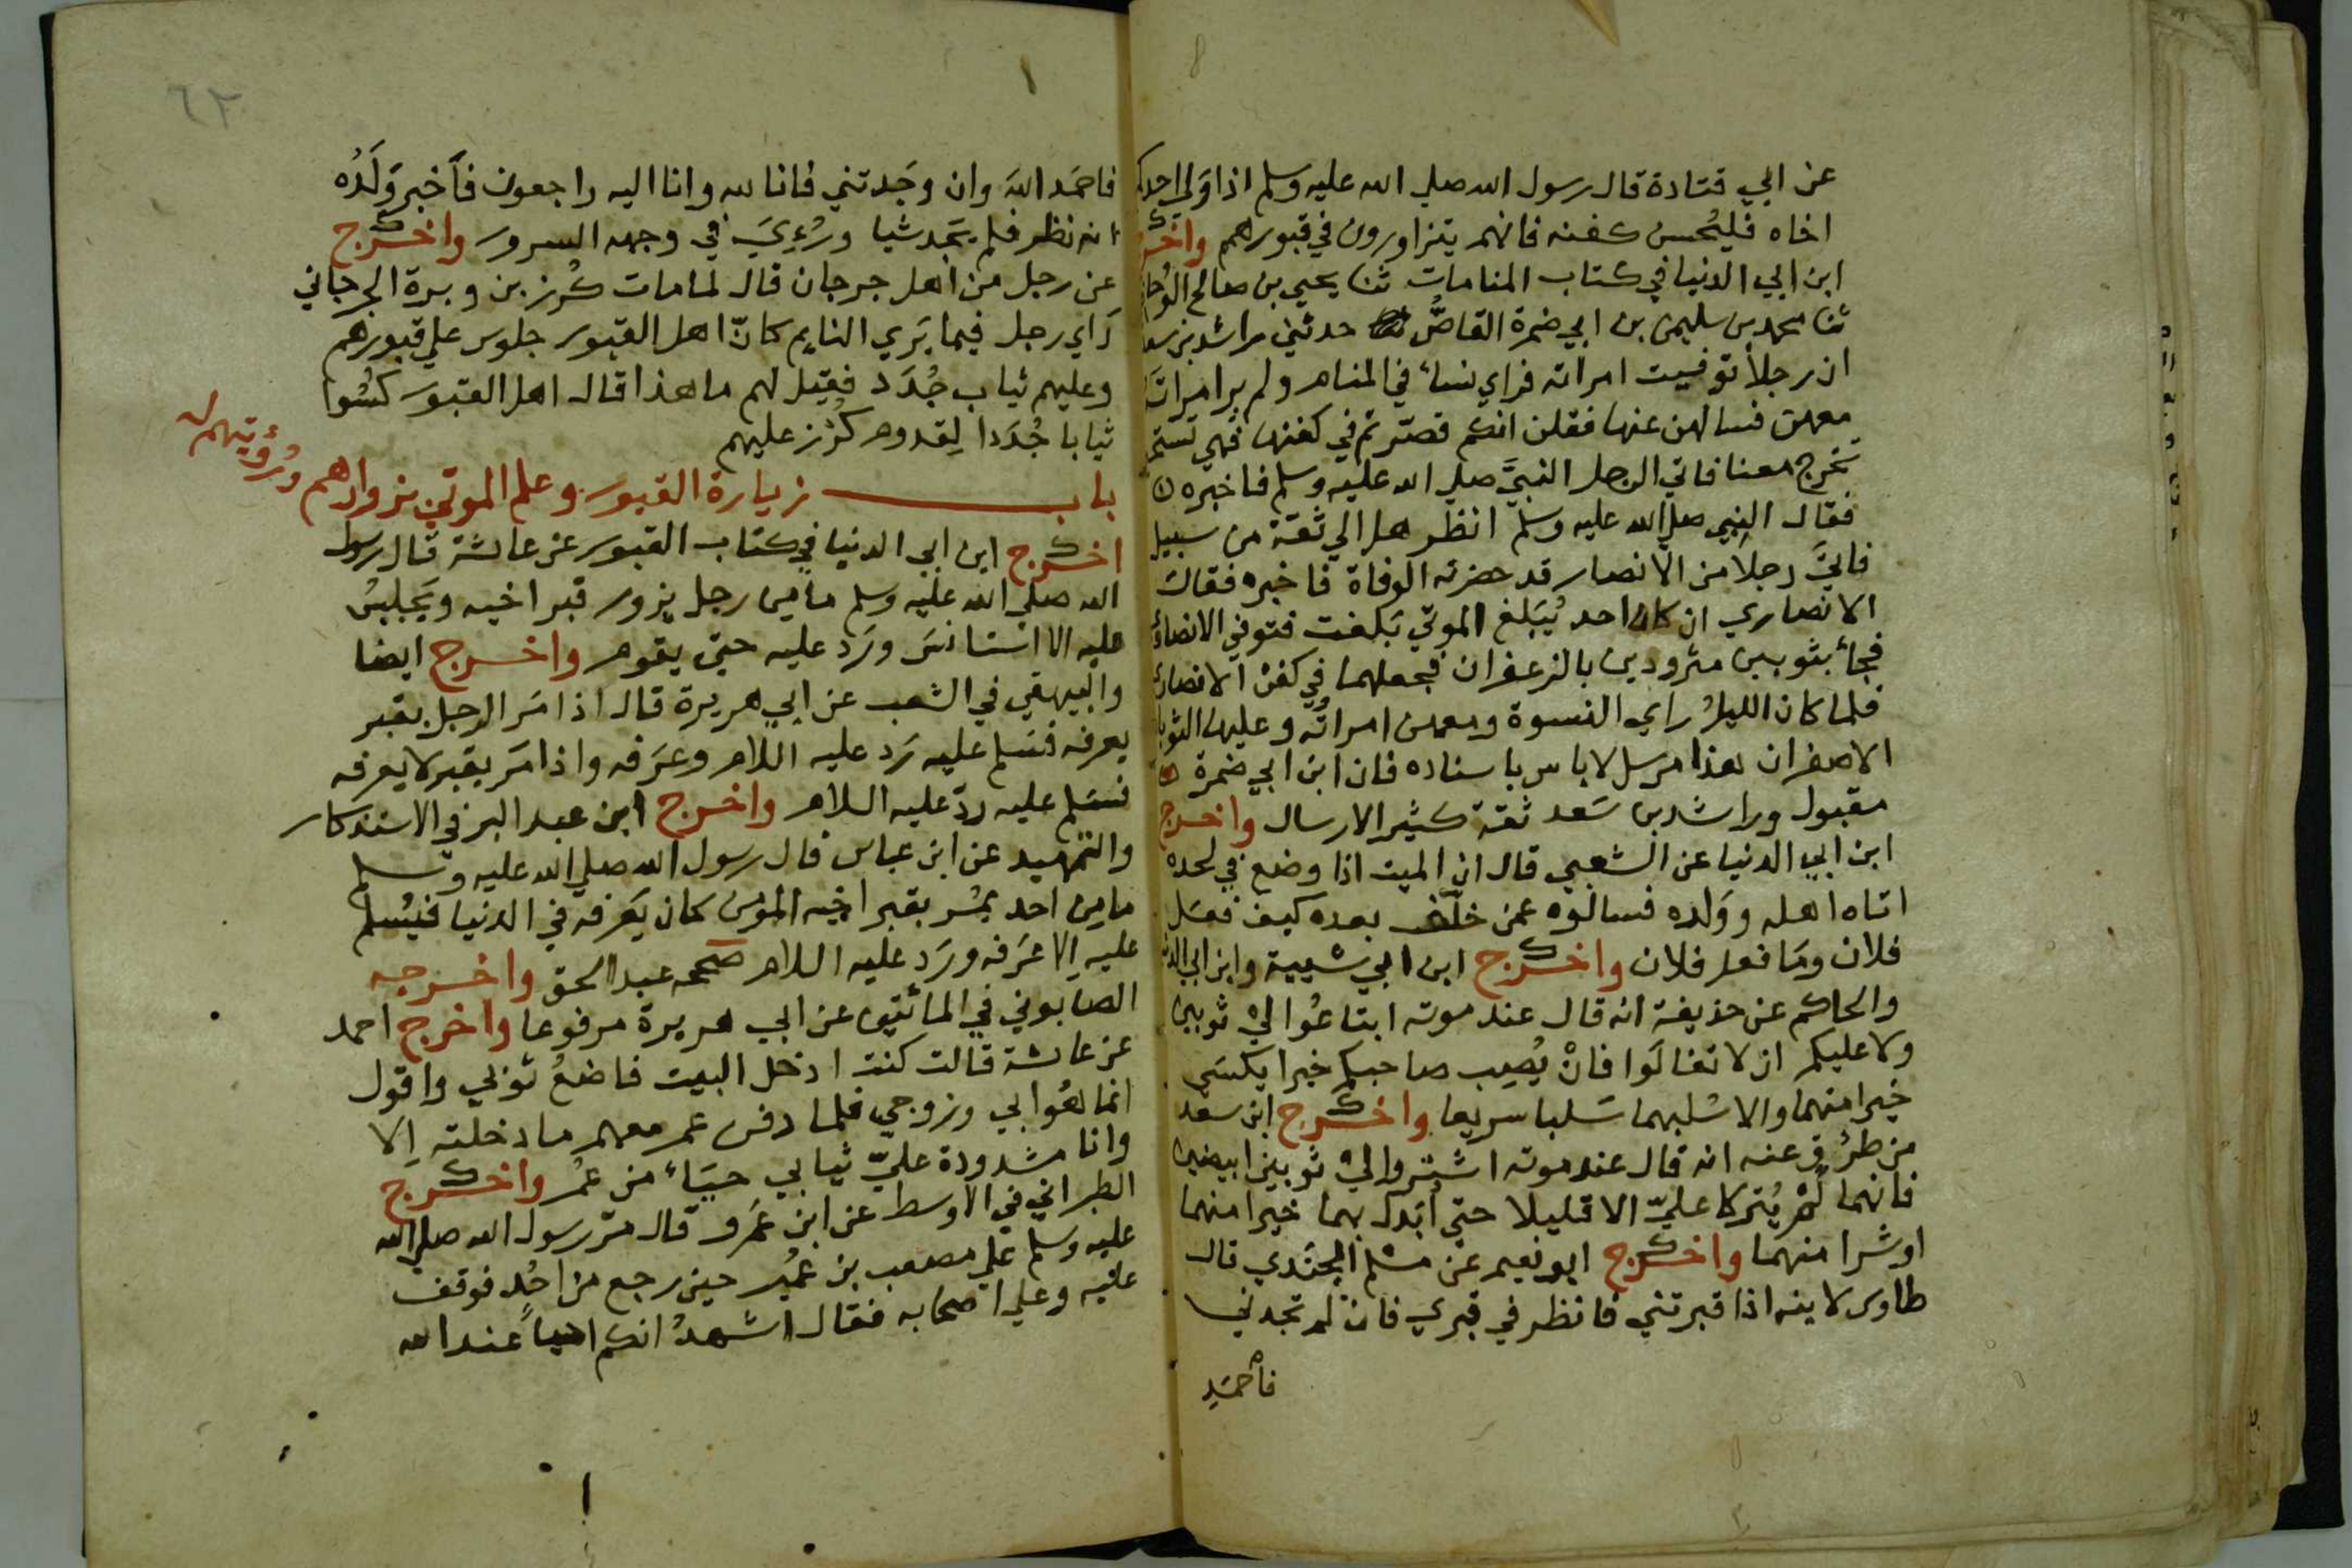 عن ابي قتادة قال رسول الله صلي الله عليه وسلم اذا وَلي احدكم
اخاه فليُحسن كفنه فانهم يتزاورون في قبورهم واخرج
ابن ابي الدنيا في كتاب المنامات ثنا يحيي بن صالح الوُحاظ
ثنا محمد بن سليمن بن ابي ضمرة القاصُّ حدثني راشد بن سعد
ان رجلا توفيت امراته فراي نساء في المنام ولم ير امراتَه
معهن فسالهن عنها فقلن انكم قصّرتم في كفنها فهي تستحي
تخرج معنا فاتي الرجل النبيَّ صلي الله عليه وسلم فاخبره
فقال النبي صلي الله عليه وسلم انظر هل الي ثقة من سبيل
فاتيَ رجلا من الانصار قد حضرته الوفاة فاخبره فقال
الانصاري ان كان احد يُبَلغ الموتي بَلغت فتوفي الانصاري
فجاء بثوبين مثرودين بالزعفران فجعلهما في كفن الانصاري
فلما كان الليلُ راي النسوة ومعهن امراتُه وعليها الثوبان
الاصفران هذا مرسل لا باس باسناده فان ابن ابي ضمرة
مقبول وراشد بن سَعد ثقة كثير الارسال واخرج
ابن ابي الدنيا عن الشعبي قال ان الميت اذا وضع في لحده
اتاه اهله ووَلده فسالوه عمن خلّف بعده كيف فعَل
فلان وَمَا فعل فلان واخرج ابن ابي شيبة وابن ابي الدنيا
والحاكم عن حذيفة انه قال عند موته ابتاعُوا لي ثوبين
ولا عليكم ان لا تغالَوا فانْ يُصِب صاحبكم خيرا يكسَي
خيرا منهما والا سُلبهما سَلبا سريعا واخرج ابن سعد
من طرُق عنه انه قال عند موته اشتروا لي ثوبين ابيضين
فانهما لَمْ يُتركا عليّ الا قليلا حتي اُبَدل بهما خيرا منهما
او شرا منهما واخرج ابو نعيم عن مسلم الجَنَدي قال
طاوس لابنه اذا قبرتني فانظر في قبري فان لم تجدني
فاحْمَدِ
٦٢
فاحمَد اللهَ وان وجَدتني فانا لله وانا اليه راجعون فاَخبر وَلَدُه
انه نظر فلم يَجد شيا ورُءِيَ في وجهه السرور واخرج
عن رجل من اهل جرجان قال لما مات كُرز بن وبرة الجرجاني
رَاي رجل فيما يَري النايم كانّ اهل القبور جلوس علي قبورهم
وعليهم ثياب جُدَد فقيل لهم ما هذا قال اهل القبور كسُوا
ثيابا جُدَدا لِقدوم كُرْز عليهم
باب زيارة القبور وعلم الموتي بزوارهم ورُؤيتهم لهم
اخرج ابن ابي الدنيا في كتاب القبور عن عائشة قال رسول
الله صلي الله عليه وسلم ما من رجل يزور قبر اخيه ويَجلِسُ
عليه الا استانسَ ورَد عليه حتي يقوم واخرج ايضا
والبيهقي في الشعب عن ابي هريرة قال اذا مَر الرجل بقبر
يعرفه فسَلم عليه رَد عليه السلام وعَرَفه واذا مَر بقبر لا يعرفه
فسَلم عليه ردّ عليه السلام واخرج ابن عبد البر في الاستذكار
والتمهيد عن ابن عباس قال رسول الله صلي الله عليه وسلم
ما مِن احد يَمُر بقبر اخيه المؤمن كان يَعَرفه في الدنيا فيُسلم
عليه اِلا عَرَفه ورَد عليه السلام صححه عبد الحق واخرجه
الصابوني في المائتين عن ابي هريرة مرفوعا واخرج احمد
عن عائشة قالت كنت ادخل البيت فاضعُ ثوبي واقول
انما هُوَ ابي وزوجي فلما دفن عمر معهم ما دخلته اِلا
وانا مشدودة عليّ ثيابي حيَاء من عُمر واخرج
الطبراني في الاوسط عن ابن عَمرو قال مَرّ رسول الله صلي الله
عليه وسلم علي مصعب بن عُمَير حين رجع من اُحُد فوقف
عليه وعلي اصحابه فقال اشهدُ انكم احياءً عند الله